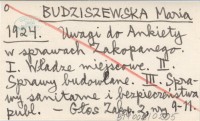 o
BUDZISZEWSKA Maria
1924. Uwagi do Ankiety
w sprawach Zakopanego.
I. Władze miejscowe. II.
Sprawy budowlane. III. Spra-
wy sanitarne i bezpieczeństwa
publ. - Głos Zakp. 2, nry 9-11.